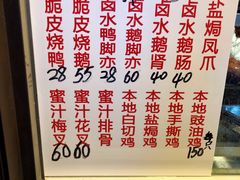 脆皮烧鸭
28
脆皮烧鹅
55
卤水鸭脚亦
28
卤水鹅脚亦
60
卤水鹅肾
40
卤水鹅肠
40
盐焗凤爪
蜜汁梅叉
60
蜜汁花叉
蜜汁排骨
本地白切鸡
本地盐焗鸡
本地手撕鸡
本地豉油鸡
150